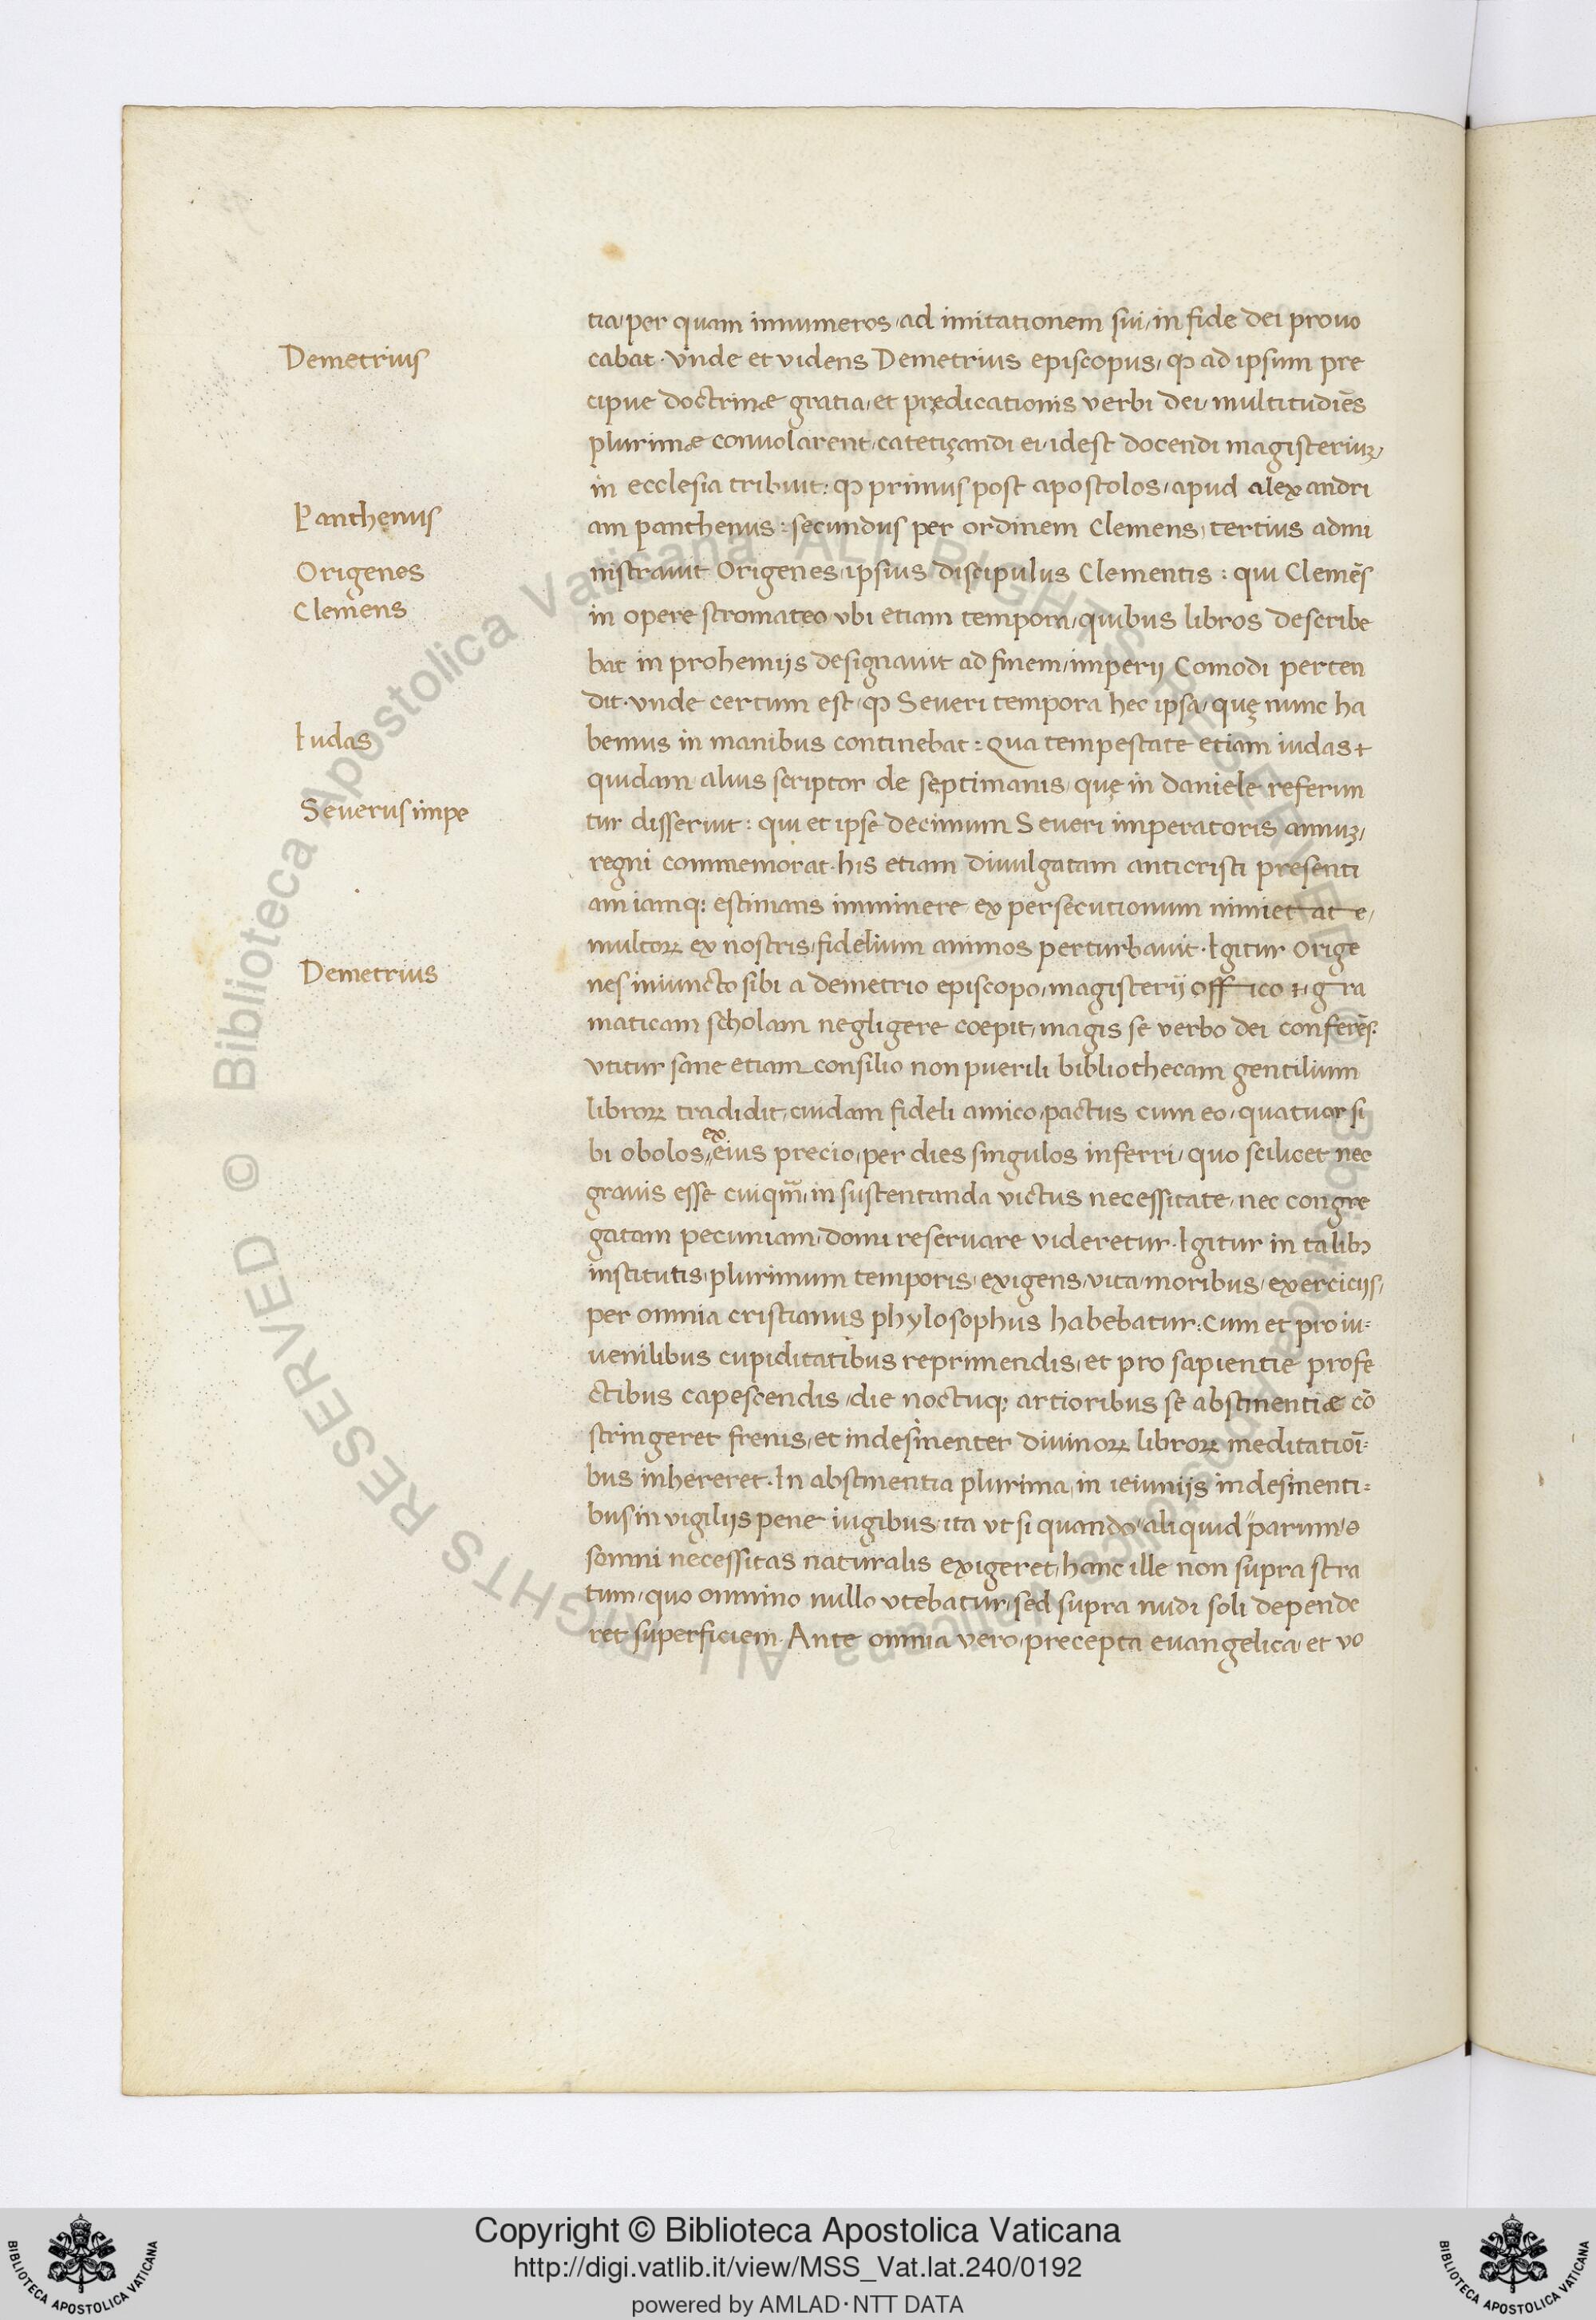 tia, per quam innumeros, ad imitationem sui, in fide dei prouo
Demetrius
cabat. Vnde et videns Demetrius episcopus, ꝙ ad ipsum pre
cipue doctrinæ gratia, et prędicationis verbi dei, multitudiēs
plurimæ conuolarent, catetiçandi ei, idest docendi magisteriuꝫ,
in ecclesia tribuit: ꝙ primus post apostolos, apud alexandri
Panthenus
am panthenus: secundus per ordinem Clemens, tertius admi
Origenes
nistrauit Origenes, ipsius discipulus Clementis: qui Clemēs
Clemens
in opere stromateo vbi etiam tempora, quibus libros describe
bat in prohemijs designauit ad finem, imperij Comodi perten
dit. vnde certum est, ꝙ Seueri tempora hec ipsa, quę nunc ha
Iudas
bemus in manibus continebat: Qua tempestate etiam iudas
quidam alius scriptor de septimanis, quę in daniele referun
Seuerus impe
tur disseruit: qui et ipse decimum Seueri imperatoris annuꝫ,
regni commemorat. his etiam diuulgatam anticristi presenti
am iamq; estimans imminere ex persecutionum nimietate,
multoꝝ ex nostris, fidelium animos perturbauit. Igitur Orige
Demetrius
nes iniuncto sibi a demetrio episcopo, magisterij officio, gra
maticam scholam negligere coepit, magis se verbo dei conferēs.
vtitur sane etiam consilio non puerili bibliothecam gentilium
libroꝝ tradidit, cuidam fideli amico, pactus cum eo, quatuor si
bi obolos, ex eius precio, per dies singulos inferri, quo scilicet nec
grauis esse cuiqm̄, in sustentanda victus necessitate, nec congre
gatam pecuniam, domi reseruare videretur. Igitur in talibꝫ
institutis, plurimum temporis, exigens, vita, moribus, exercicijs,
per omnia cristianus phylosophus habebatur: Cum et pro iu=
uenilibus cupiditatibus reprimendis, et pro sapientie profe
ctibus capescendis, die noctuq; artioribus se abstinentiæ cō
stringeret frenis, et indesinenter diuinoꝝ libroꝝ meditatioī=
bus inhereret. In abstinentia plurima, in ieiunijs indesinenti=
bus in vigilijs pene iugibus, ita vt si quando, aliquid parum,
somni necessitas naturalis exigeret, hanc ille non supra stra
tum, quo omnino nullo vtebatur, sed supra nudi soli depende
ret superficiem. Ante omnia vero, precepta euangelica, et vo
© Biblioteca Apostolica Vaticana ALL RIGHTS RESERVED
Copyright © Biblioteca Apostolica Vaticana
http://digi.vatlib.it/view/MSS_Vat.lat.240/0192
powered by AMLAD·NTT DATA
BIBLIOTECA APOSTOLICA VATICANA
BIBLIOTECA APOSTOLICA VATICANA